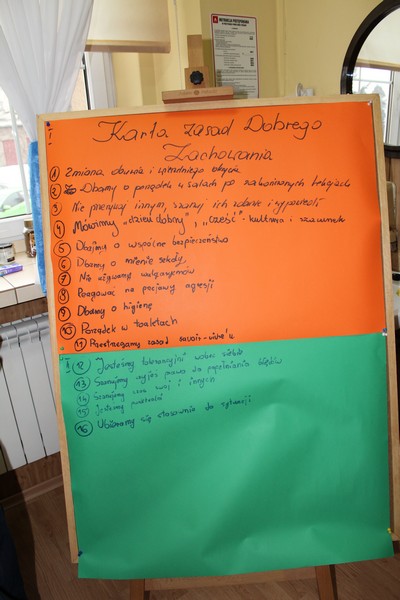 I
Karta Zasad Dobrego
Zachowania
1 Zmiana obuwia i wierzchniego okrycia
2 Dbamy o porządek w salach po zakończonych lekcjach
3 Nie przerywaj innym, szanuj ich zdanie i wypowiedź
4 Mówimy "dzień dobry", "cześć" - kultura i szacunek
5 Dbajmy o wspólne bezpieczeństwo
6 Dbamy o mienie szkoły
7 Nie używamy wulgaryzmów
8 Reagować na przejawy agresji
9 Dbamy o higienę
10 Porządek w toaletach
11 Przestrzegamy zasad savoir-vivre'u
II 12 Jesteśmy tolerancyjni wobec siebie
13 Szanujemy czyjeś prawo do popełniania błędów
14 Szanujemy czas swój i innych
15 Jesteśmy punktualni
16 Ubieramy się stosownie do sytuacji